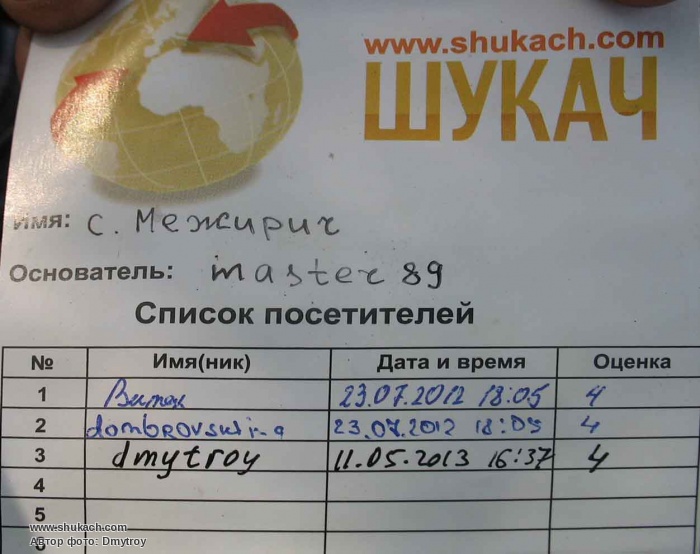 www.shukach.com
ШУКАЧ
Имя: с. Межирич
Основатель: master 89
Список посетителей
№ Имя(ник) Дата и время Оценка
1 Витек 23.07.2012 18:05 4
2 23.07.2012 18:05 4
3 dmytroy 11.05.2013 16:37 4
4
5
6
www.shukach.com
Автор фото: Dmytroy